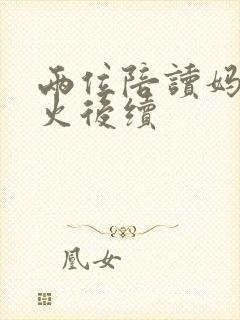 兩位陪讀媽
火後續
凰女